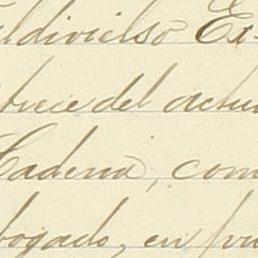 aldivielso Ex-
trece del actu
Cadena, com
bogado, en pu